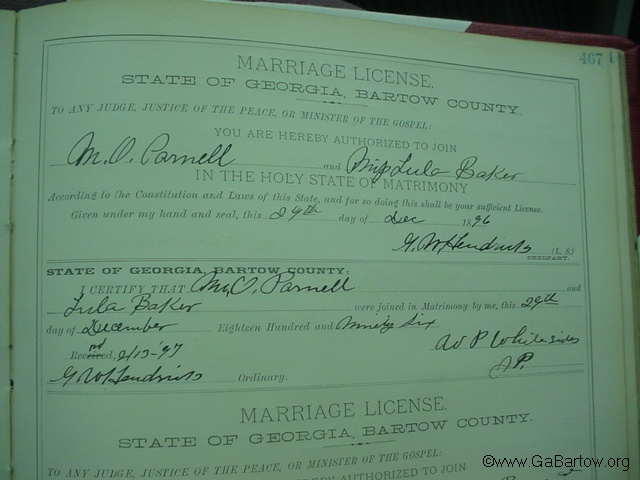 467
MARRIAGE LICENSE.
STATE OF GEORGIA, BARTOW COUNTY.
TO ANY JUDGE, JUSTICE OF THE PEACE, OR MINISTER OF THE GOSPEL:
YOU ARE HEREBY AUTHORIZED TO JOIN
M. O. Parnell and Miss Lula Baker
IN THE HOLY STATE OF MATRIMONY
According to the Constitution and Laws of this State, and for so doing this shall be your sufficient License.
Given under my hand and seal, this 29th day of Dec 1896
G. W. Hendricks (L. S.)
ORDINARY.
STATE OF GEORGIA, BARTOW COUNTY:
I CERTIFY THAT M. O. Parnell and
Lula Baker were joined in Matrimony by me, this 29th
day of December Eighteen Hundred and Ninety Six
Received, 2/13-'97 W P Whitesides
J P.
G W Hendricks Ordinary.
MARRIAGE LICENSE.
STATE OF GEORGIA, BARTOW COUNTY.
TO ANY JUDGE, JUSTICE OF THE PEACE, OR MINISTER OF THE GOSPEL:
YOU ARE HEREBY AUTHORIZED TO JOIN
©www.GaBartow.org